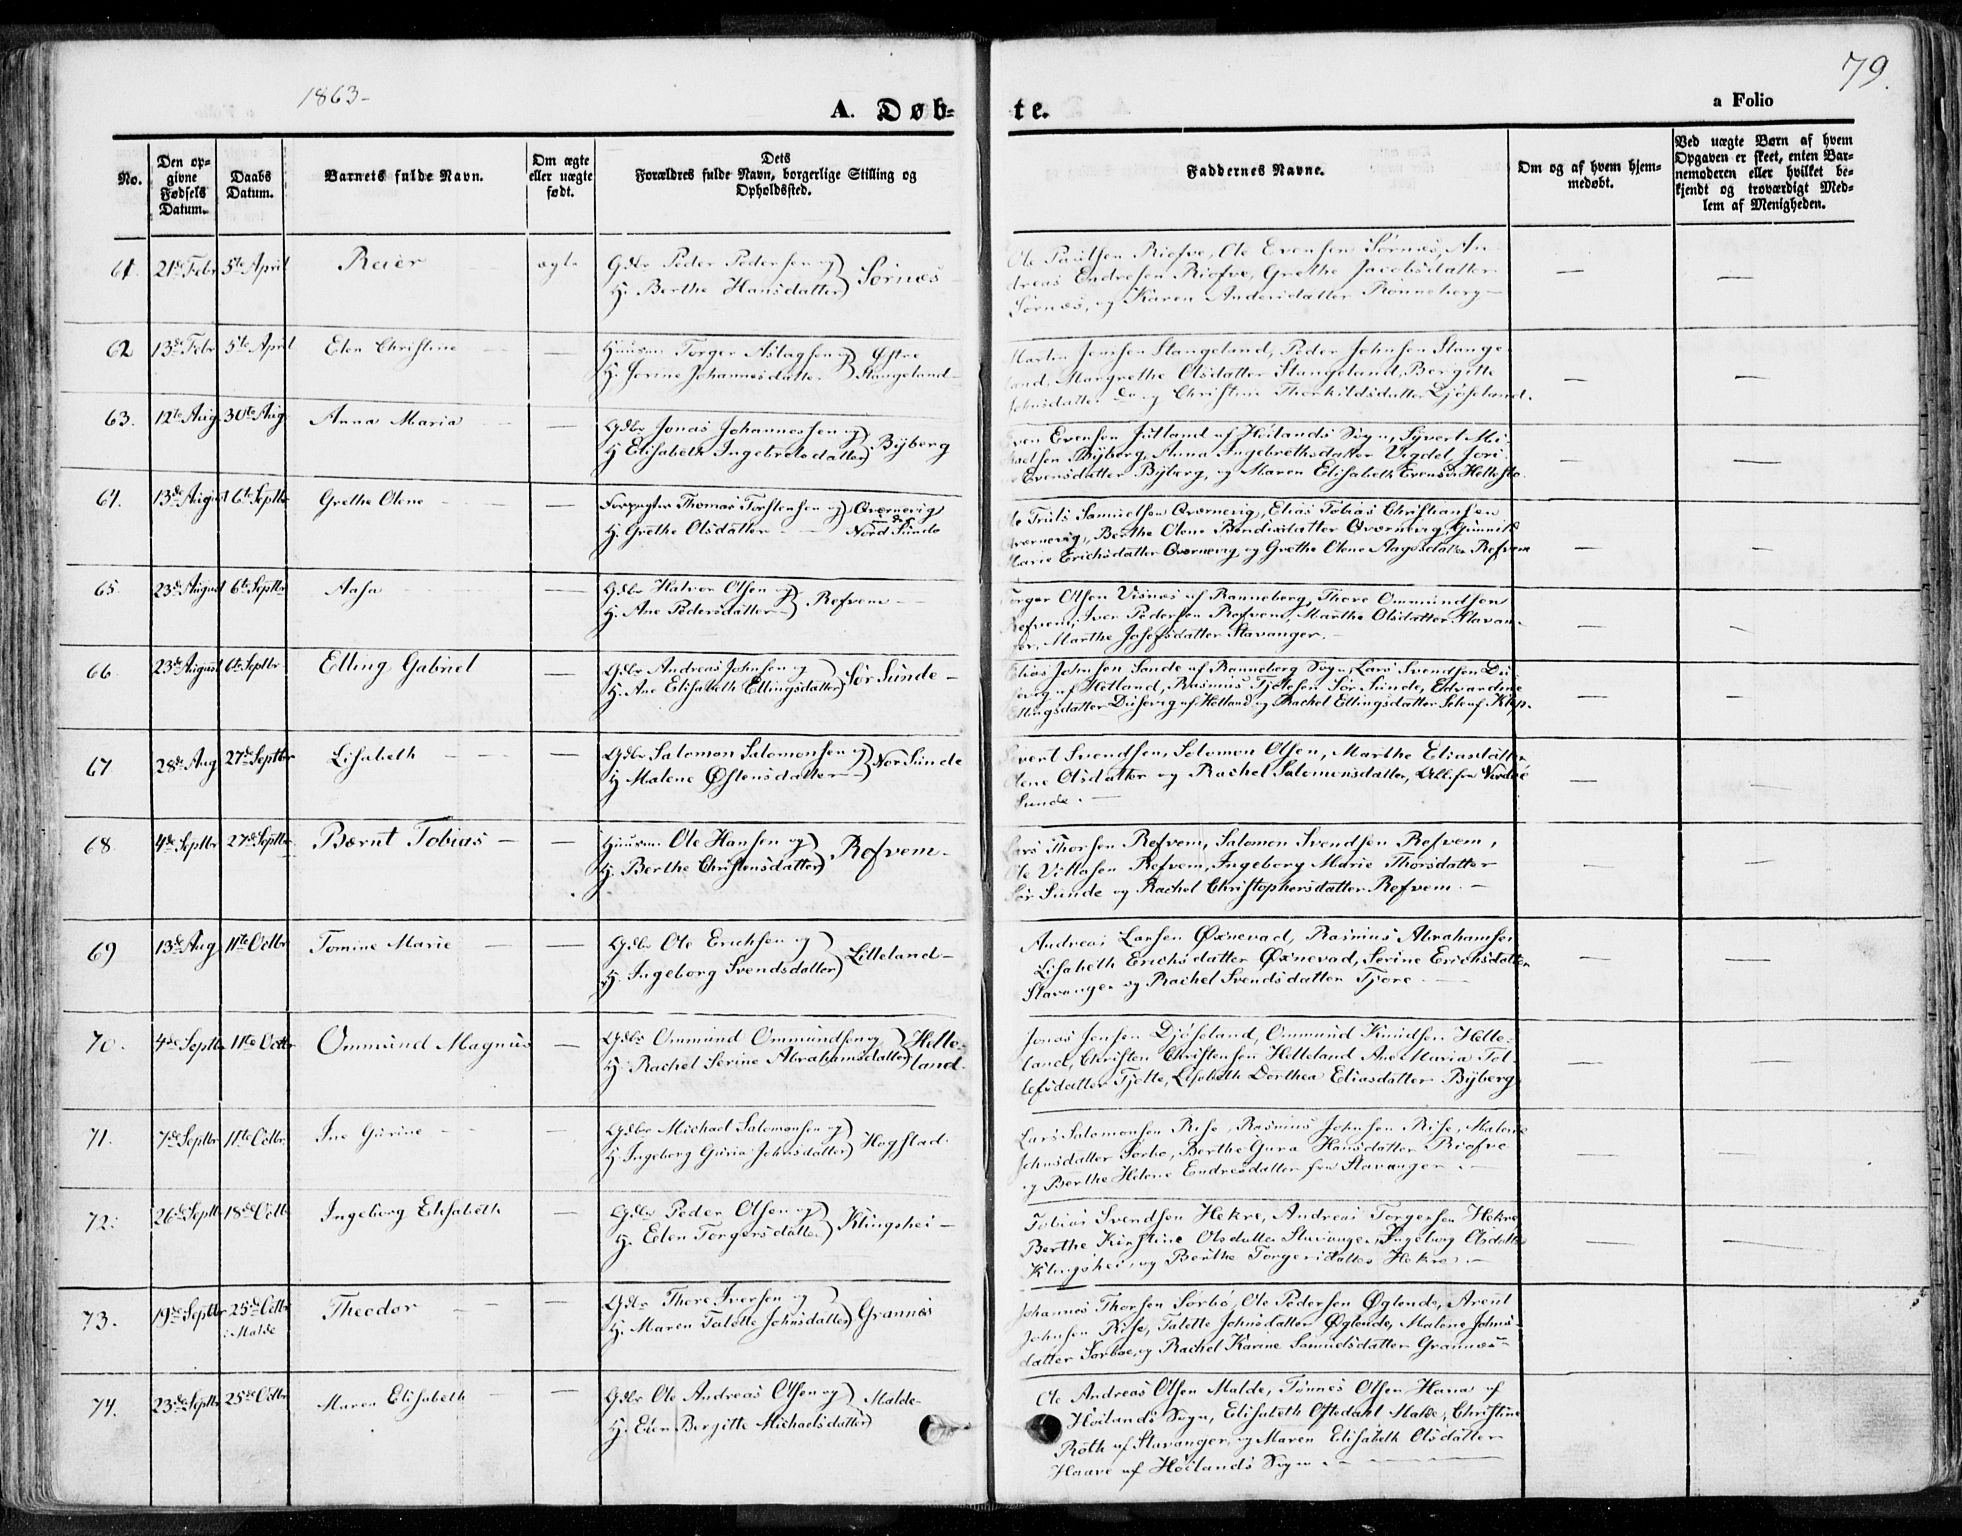 79.
1863-
A. Døb-
te.
a Folio
No.
Den op-
givne
Fødsels
Datum.
Daabs
Datum.
Barnets fulde Navn.
Om ægte
eller uægte
født.
Dets
Forældres fulde Navn, borgerlige Stilling og
Opholdssted.
Faddernes Navne.
Om og af hvem hjem-
medøbt.
Ved uægte Børn af hvem
Opgaven er skeet, enten Bar-
nemoderen eller hvilket be-
kjendt og troværdigt Med-
lem af Menigheden.
61. 21de Febr 5te April Reier ægte Gdbr Peder Pedersen og
H. Berthe Hansdatter) Sørnæs
Ole Paulsen Riofve, Ole Evensen Sørnæs, An-
dreas Endresen Riofve, Grethe Jacobsdatter
Sørnæs, og Karen Andersdatter Rønneberg —
62 13de Febr 5te April Elen Christine — Huusm Torger Aslagsen og) Østre
H. Serine Johannesdatter) Stangeland —
Martin Jensen Stangeland, Peder Johnsen Stange-
land, Margrethe Olsdatter Stangeland, Bergitte
Johnsdatter do og Christine Thorkildsdatter Djøseland.
63. 12te Aug. 30te Aug. Anna Maria — Gdbr Jonas Johannessen og
H Elisabeth Ingebretsdatter) Bÿberg
Even Evensen Jütland af Høilands Sogn, Syvert Mi-
kaelsen Bÿberg, Anna Ingebrethsdatter Vigdel, Jori
Evensdatter Bÿberg, og Maren Elisabeth Evensdr Hellestø
64. 13de August 6te Septbr Grethe Olene — Forpagter Thomas Torstensen og) Qværnevig
H. Grethe Olsdatter — Nord Sunde
Ole Truls Samuelsen Qværnevig, Elias Tobias Christiansen
Qværnevig, Berthe Olene Bendixdatter Qværnevig, Gunnild
Marie Erichsdatter Qværnevig og Grethe Olene Aagesdatter Refvem
65. 23de August 6te Septbr Aasa — Gdbr Halvor Olsen og
H. Ane Pedersdatter) Refvem —
Torger Olsen Visnes af Ranneberg, Thore Ommundsen
Refvem, Iver Pedersen Refvem, Marthe Olsdatter Stavan-
ger, Marthe Josefsdatter Stavanger. —
66 23de August 6te Septbr Elling Gabriel — Gdbr Andreas Johnsen og
H. Ane Elisabeth Ellingsdatter) Sør Sunde —
Elias Johnsen Sande af Ranneberg Sogn, Lars Svendsen Du-
sevig af Hetland, Rasmus Tjølesen Sør Sunde, Edvardine
Ellingsdatter Dusevig af Hetland og Rachel Ellingsdatter Sele af Klep.
67 28de Aug 27de Septbr Lisabeth — Gdbr Salomon Salomonsen og
H Malene Østensdatter —) Nor Sunde
Sivert Svendsen, Solomon Olsen, Marthe Eliasdatter
Olene Olsdatter og Rachel Salomonsdatter, Alle fra Nordre
Sunde. —
68 4de Septbr 27de Septbr Bærnt Tobias — Huusm. Ole Hansen og
H. Berthe Christensdatter) Refvem.
Lars Thorsen Refvem, Salomon Svendsen Refvem,
Ole Villasen Refvem, Ingeborg Marie Thorsdatter
Sør Sunde og Rachel Christophersdatter Refvem. —
69 13de Aug 11te Octbr Tomine Marie — Gdbr Ole Erichsen og
H. Ingeborg Svendsdatter) Lilleland —
Andreas Larsen Øxnevad, Rasmus Abrahamsen
Lisabeth Erichsdatter Øxnevad, Serine Erichsdatter
Stavanger og Rachel Svendsdatter Tjore. —
70. 4de Septbr 11te Octbr Ommund Magnus — Gdbr Ommund Ommundsen og) Helle-
H. Rachel Serine Abrahamsdatter) land.
Jonas Jensen Djøseland, Ommund Knudsen Helle-
land, Christen Christensen Helleland Ane Maria Tol-
lefsdatter Tjelte, Lisabeth Dorthea Eliasdatter Bÿberg
71. 7de Septbr 11te Octbr. Ine Gurine — Gdbr Michael Salomonsen og
H. Ingeborg Guria Johnsdatter) Hogstad.
Lars Salomonsen Rise, Rasmus Johnsen Rise, Malene
Johnsdatter Sørbø, Berthe Gura Hansdatter Riofve
og Berthe Helene Endresdatter fra Stavanger. —
72. 26de Septbr 18de Octbr Ingeborg Elisabeth — Gdbr Peder Olsen og
H. Elen Torgersdatter) Klingshei —
Tobias Svendsen Hekre, Andreas Torgersen Hekre,
Berthe Kirstine Olsdatter Stavanger, Ingeborg Olsdatter
Klingshei, og Berthe Torgersdatter Hekre. —
73. 19de Septbr 25de Octbr
i Malde
Theodor — Gdbr Thore Iversen og
H. Maren Talette Johnsdatter) Grannes
Johannes Thorsen Sørbø, Ole Pedersen Øglende, Arent
Johnsen Rise, Talette Johnsdatter Øglende, Malene Johns-
datter Sørbøe, og Rachel Karine Samuelsdatter Grannæs —
74. 23de Septbr 25de Octbr Maren Elisabeth — Gdbr Ole Andreas Olsen og) Malde
H. Elen Bergitte Michaelsdatter)
Ole Andreas Olsen Malde, Tønnes Olsen Hana af
Høilands Sogn, Elisabeth Oftedahl Malde, Christine
Roth af Stavanger, og Maren Elisabeth Olsdatter
Haave af Høilands Sogn. —